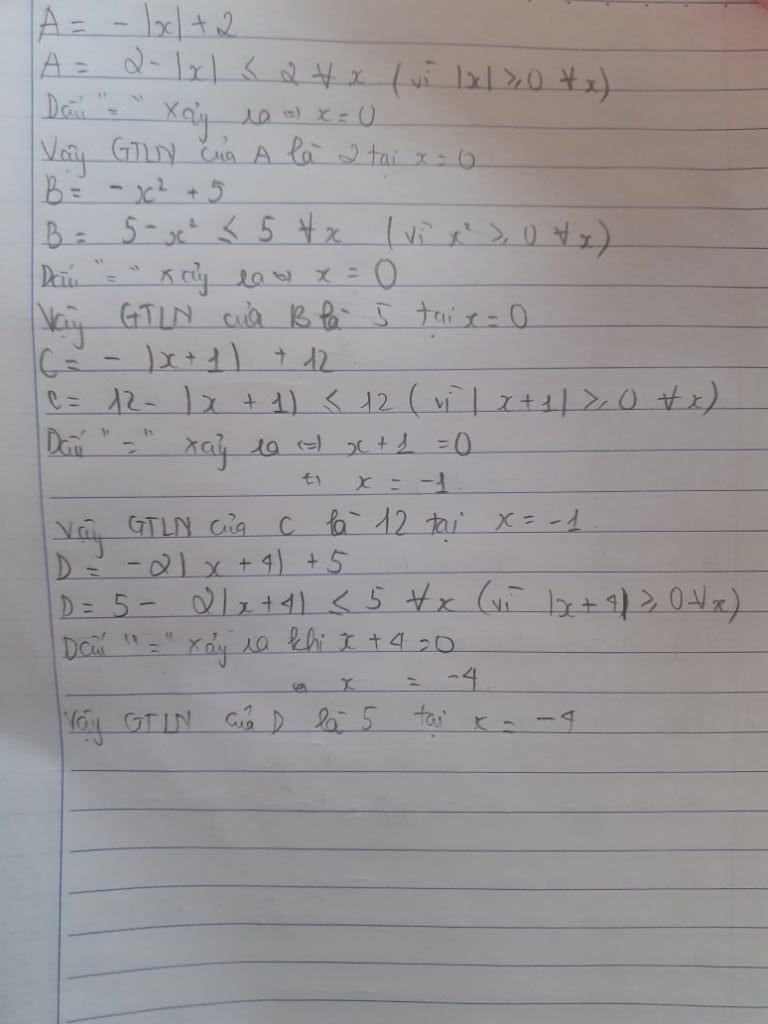 A = - |x| + 2
A = 2 - |x| ≤ 2 ∀ x (vì |x| ≥ 0 ∀x)
Dấu "=" xảy ra ⇔ x = 0
Vậy GTLN của A là 2 tại x = 0
B = - x² + 5
B = 5 - x² ≤ 5 ∀x (vì x² ≥ 0 ∀x)
Dấu "=" xảy ra ⇔ x = 0
Vậy GTLN của B là 5 tại x = 0
C = - |x + 1| + 12
C = 12 - |x + 1| ≤ 12 (vì |x + 1| ≥ 0 ∀x)
Dấu "=" xảy ra ⇔ x + 1 = 0
⇔ x = -1
Vậy GTLN của C là 12 tại x = -1.
D = -2|x + 4| + 5
D = 5 - 2|x + 4| ≤ 5 ∀x (vì |x + 4| ≥ 0 ∀x)
Dấu "=" xảy ra khi x + 4 = 0
⇔ x = -4
Vậy GTLN của D là 5 tại x = -4